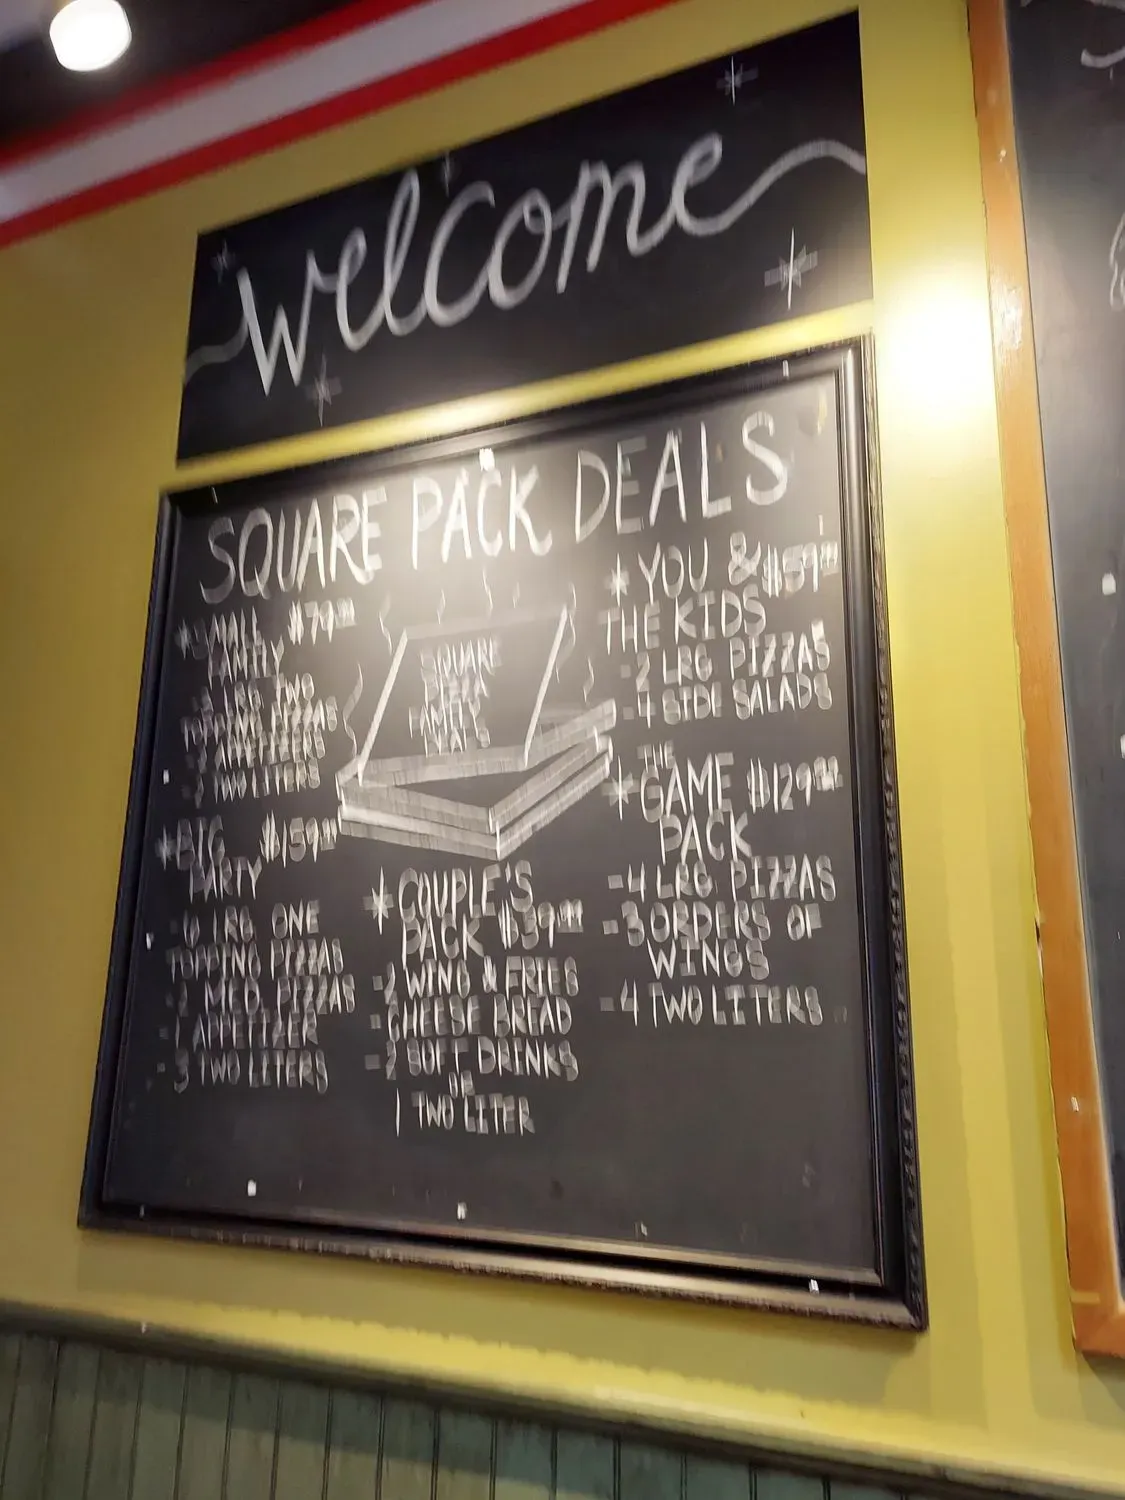 Welcome
SQUARE PACK DEALS
* SMALL $79
FAMILY
LRG TWO
TOPPING PIZZAS
APPETIZERS
2 TWO LITERS
* BIG $159
PARTY
LRG ONE
TOPPING PIZZAS
MED. PIZZAS
1 APPETIZER
3 TWO LITERS
SQUARE
PIZZA
FAMILY
MEALS
* COUPLE'S
PACK $39
WING & FRIES
- CHEESE BREAD
- 2 SOFT DRINKS
OR
1 TWO LITER
* YOU & $59
THE KIDS
- 2 LRG PIZZAS
- 4 SIDE SALADS
THE
* GAME $129
PACK
- 4 LRG PIZZAS
- 3 ORDERS OF
WINGS
- 4 TWO LITERS